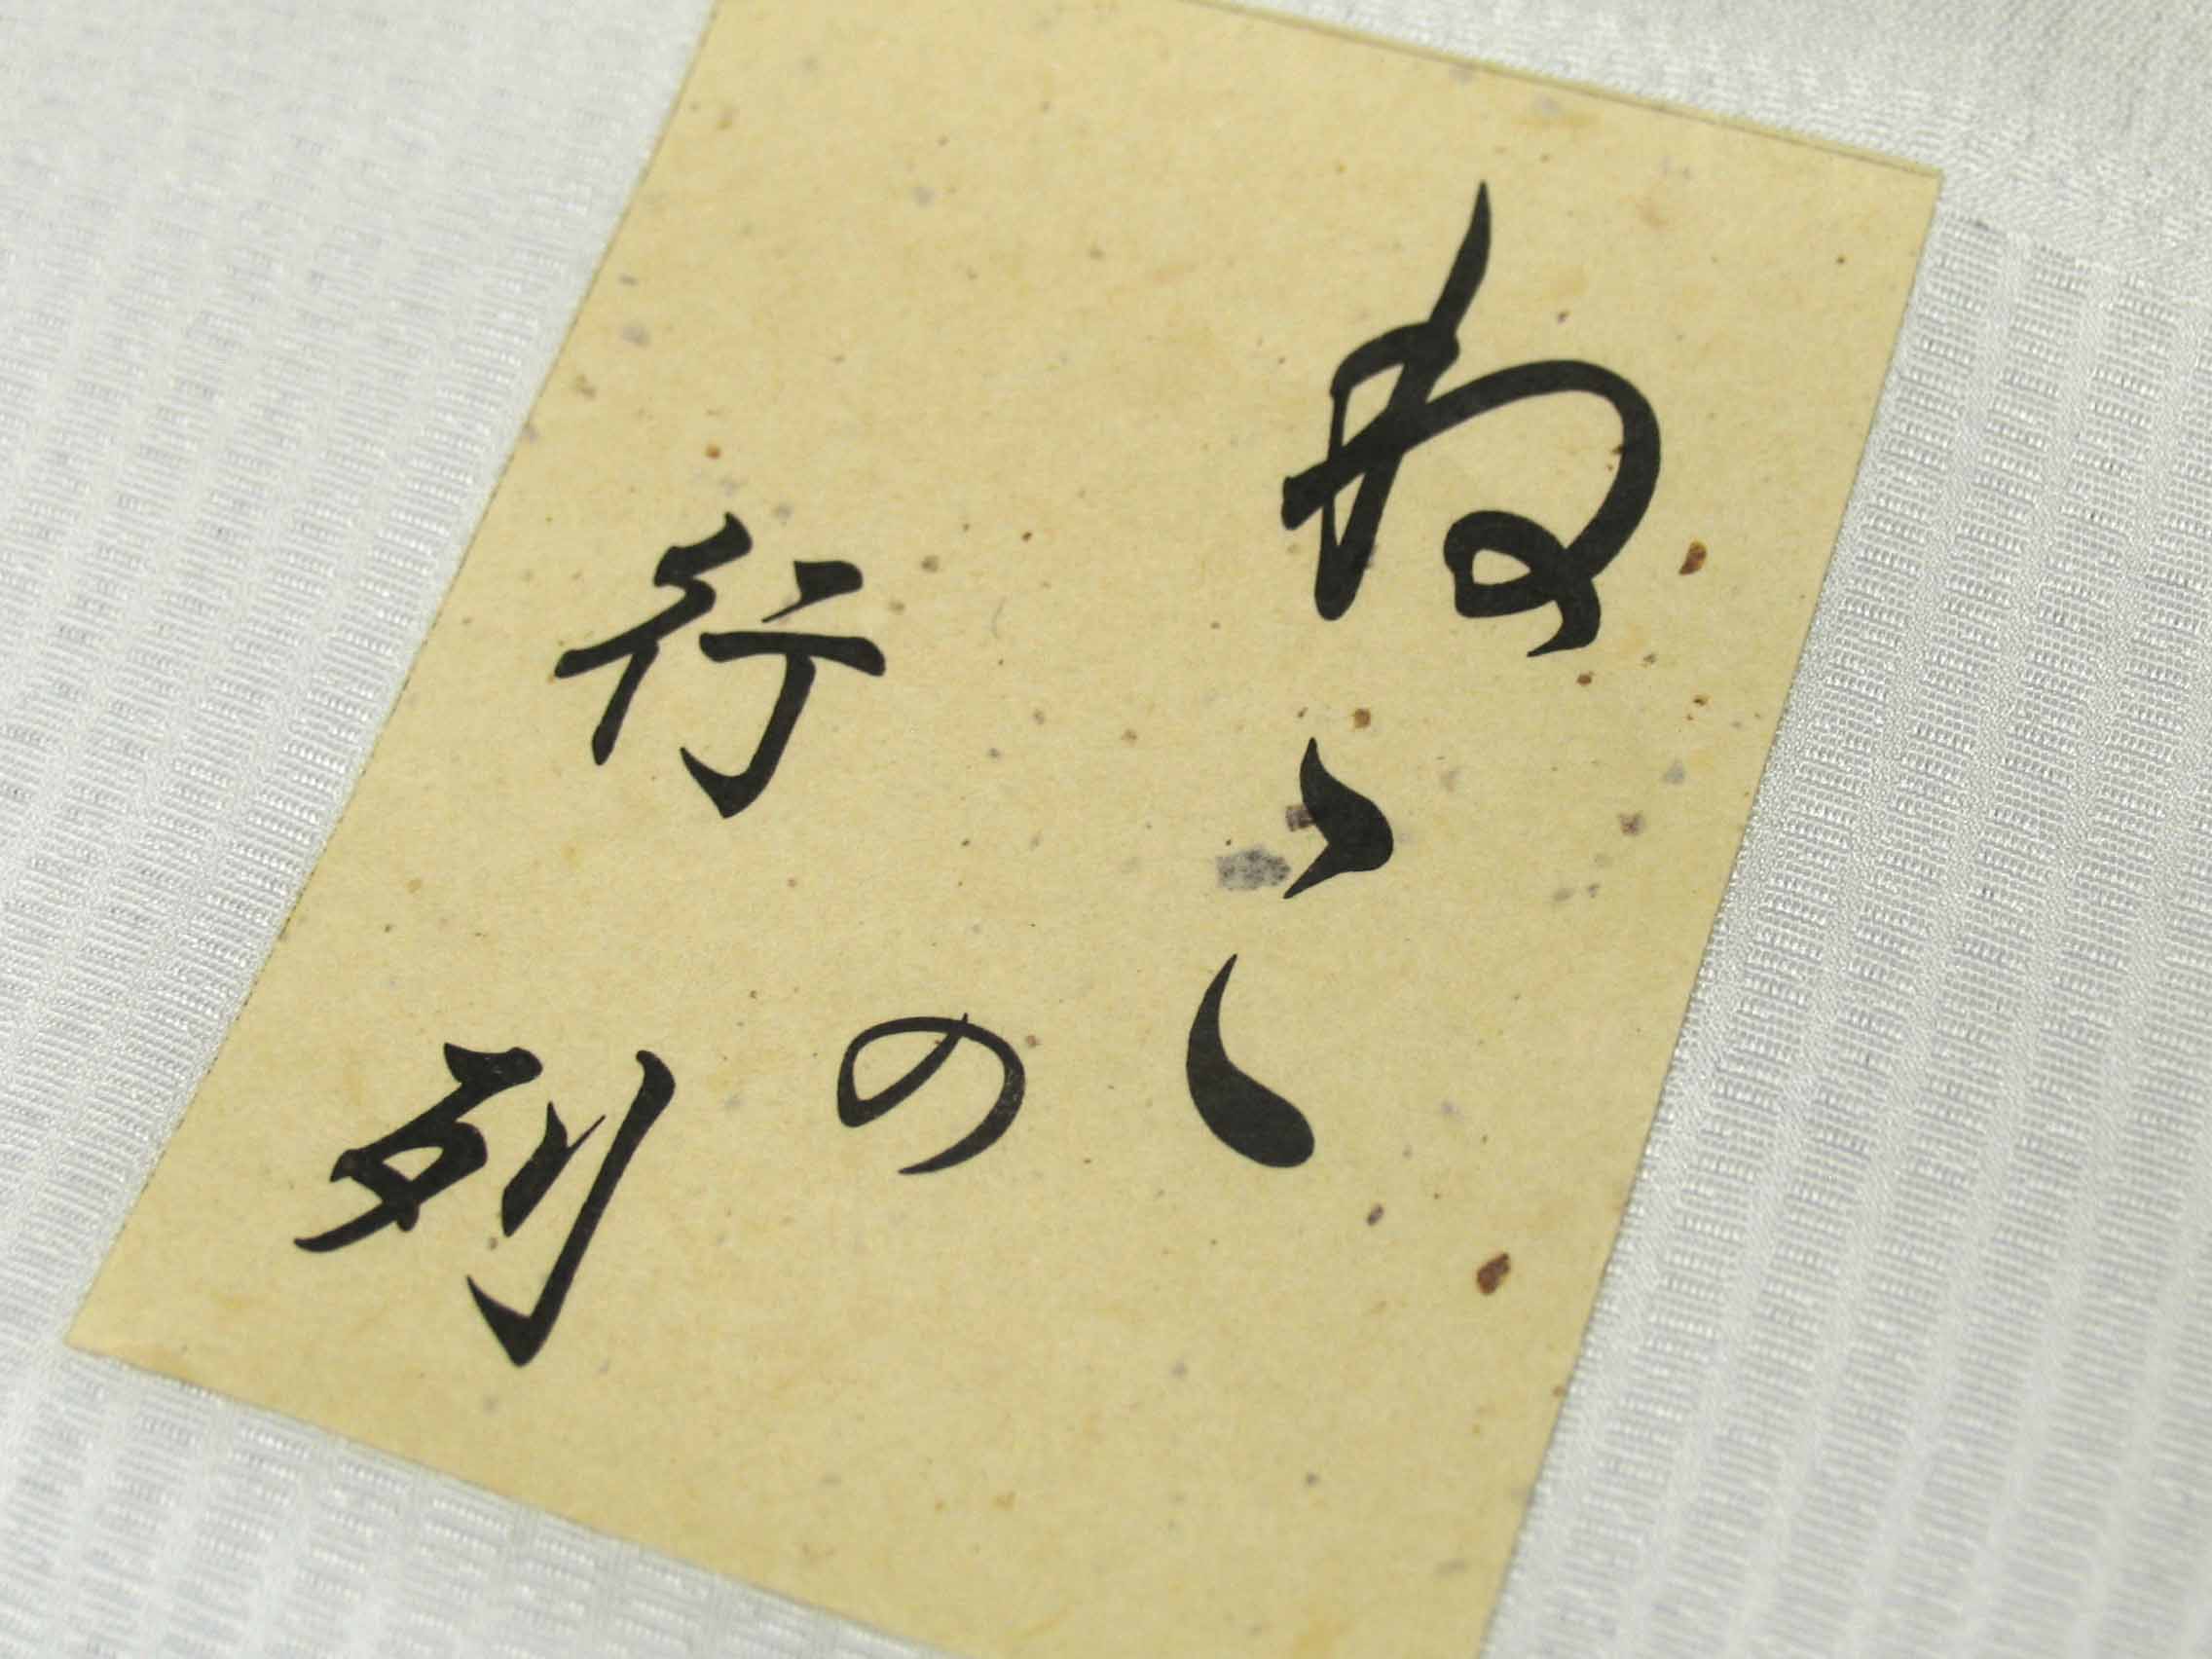 ねこ
の
行列